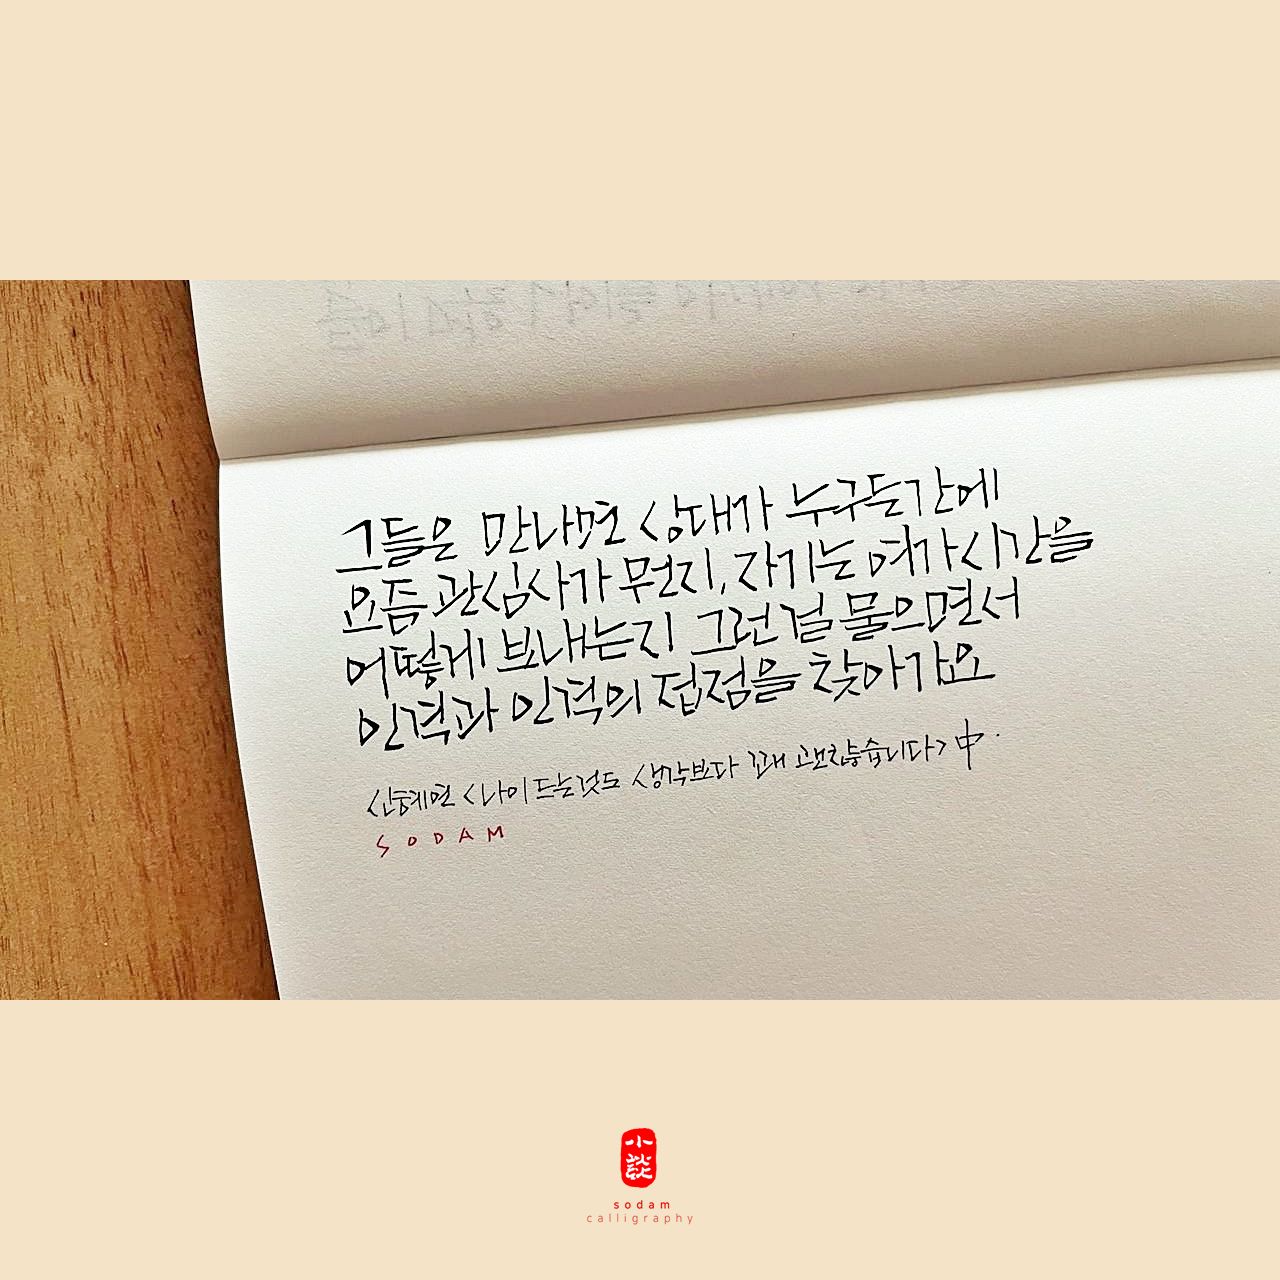 그들은 만나면 상대가 누구든간에
요즘 관심사가 뭔지, 자기는 여가시간을
어떻게 보내는지 그런걸 물으면서
인격과 인격의 접점을 찾아가요
신혜연 <나이드는것도 생각보다 꽤 괜찮습니다> 中.
SODAM
小談
sodam
calligraphy